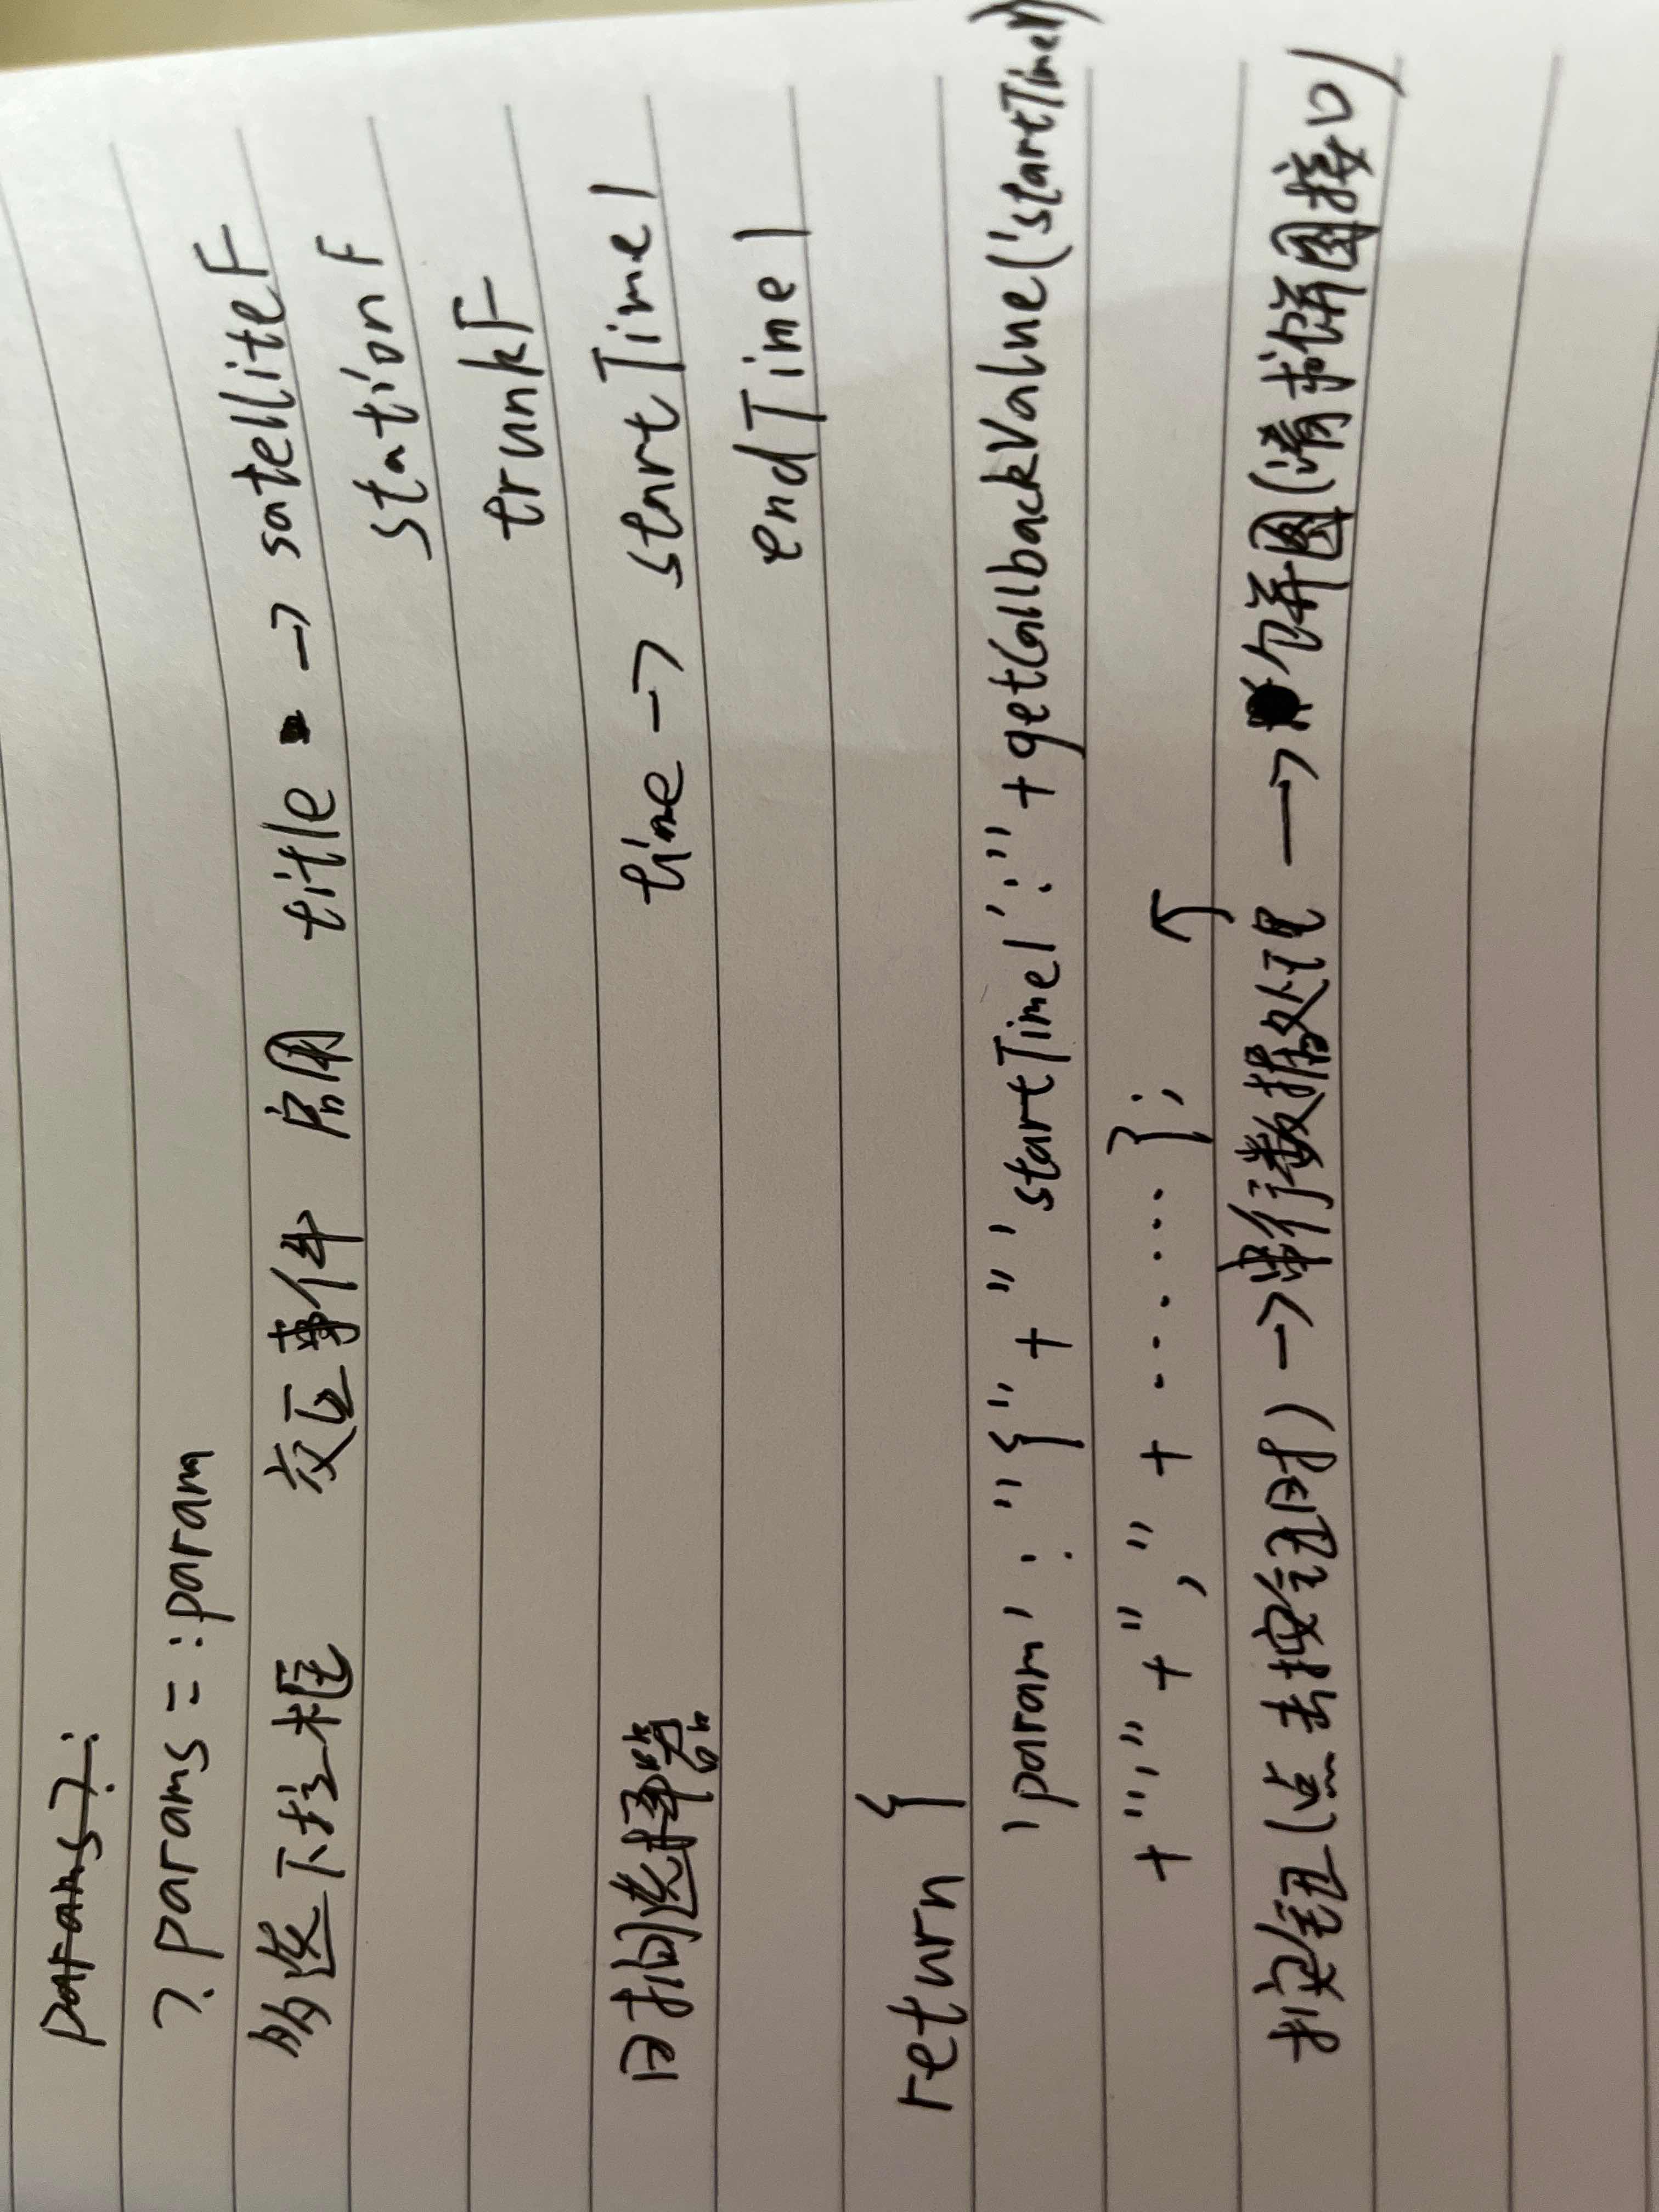 params?:
?params = :param
多选下拉框 交互事件 启用 title → satelliteF
stationF
trunkF
时间选择器 time → startTime1
endTime1
return {
'param' : "{" + "'startTime1':'" + getCallbackValue('startTime1')
+ "'" + "," + ...... };
按钮(点击按钮时) → 串行数据处理 → 个饼图(请求饼图接口)